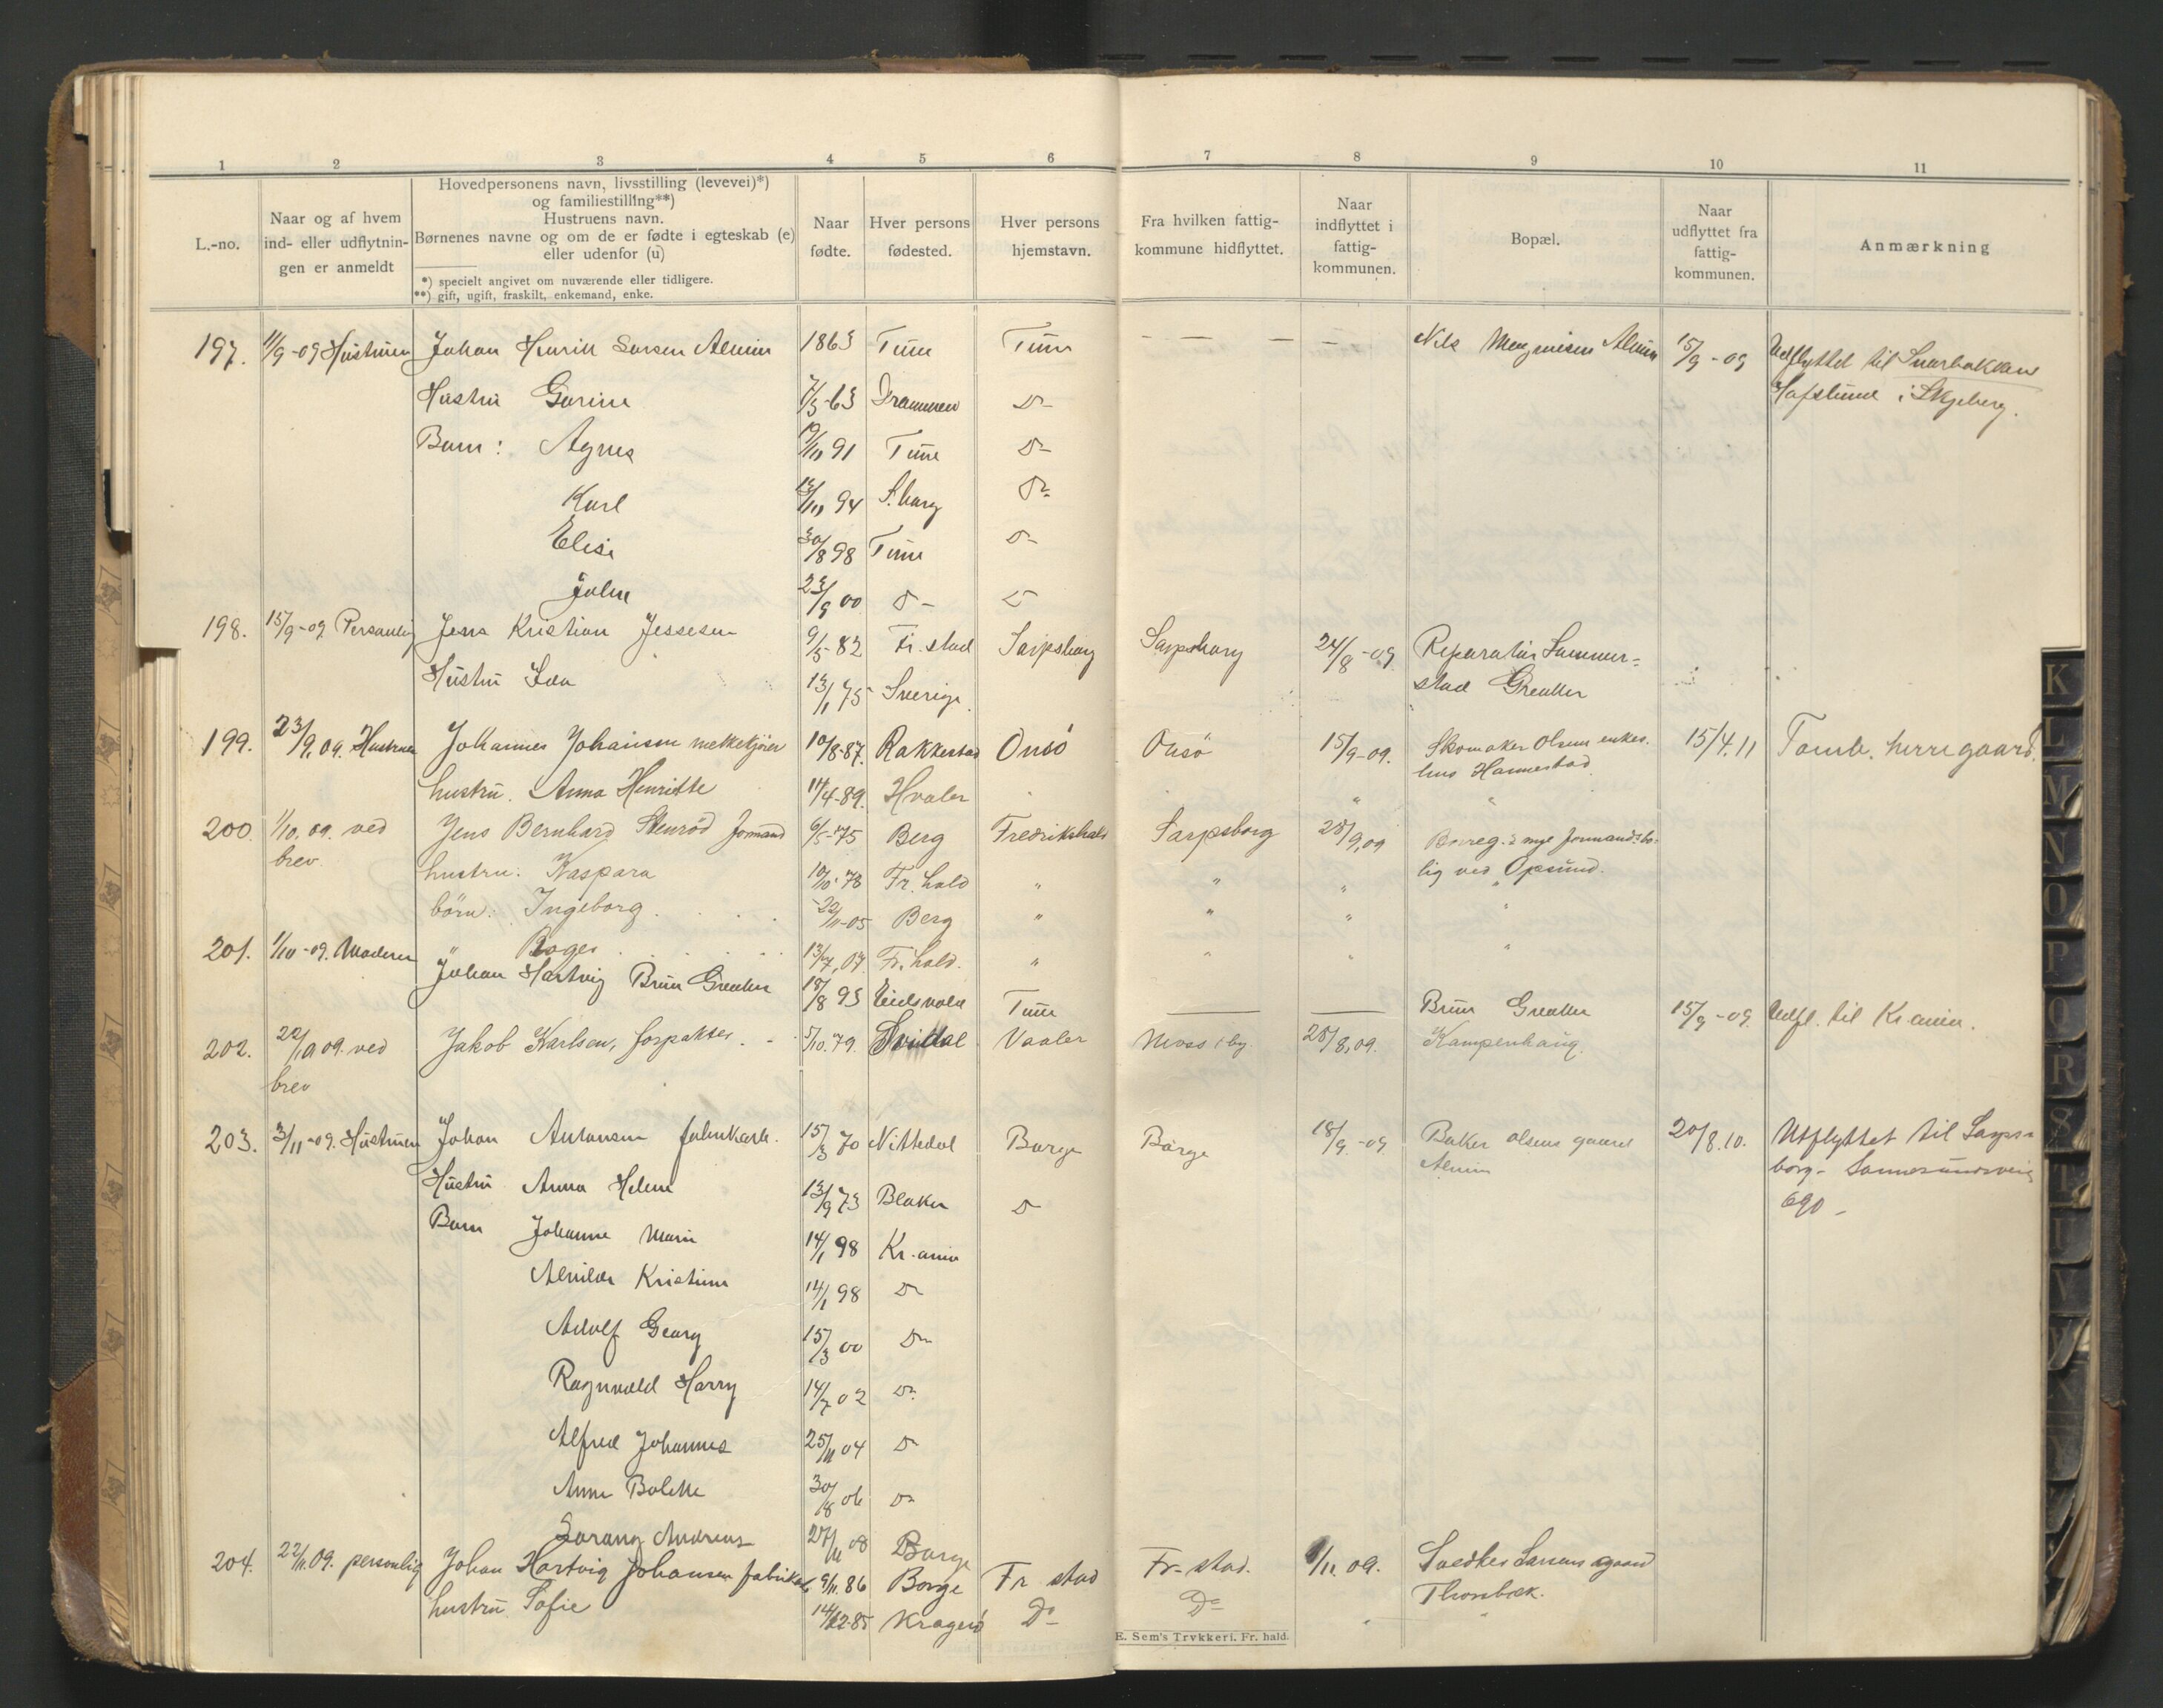 1 2 3 4 5 6 7 8 9 10 11
L.-no.
Naar og af hvem
ind- eller udflytnin-
gen er anmeldt
Hovedpersonens navn, livsstilling (levevei)*)
og familiestilling**)
Hustruens navn.
Børnenes navne og om de er fødte i egteskab (e)
eller udenfor (u)
*) specielt angivet om nuværende eller tidligere.
**) gift, ugift, fraskilt, enkemand, enke.
Naar
fødte.
Hver persons
fødested.
Hver persons
hjemstavn.
Fra hvilken fattig-
kommune hidflyttet.
Naar
indflyttet i
fattig-
kommunen.
Bopæl.
Naar
udflyttet fra
fattig-
kommunen.
Anmærkning
197. 11/9-09 Hustruen Johan Henrik Larsen Alvim 1863 Tune Tune — — — — Nils Magnusen Alvim 15/9-09 Udflyttet til Snarbakken
Hustru Gurine 7/3-63 Drammen D– Hafslund i Skjeberg.
Barn: Agnes 19/10 91 Tune D–
Karl 94 S.borg D–
Elise 30/8 98 Tune D–
John 23/9 00 D– D
198. 15/9-09 Personlig Jens Kristian Jessesen 9/5-82 Fr.stad Sarpsborg Sarpsborg 24/8-09 Reparatür Sammer=
Hustru Ida 13/1 75 Sverige. stad Greaker
199. 23/9,09. Hustruen Johannes Johansen melkekjører 10/8-87. Rakkestad Onsö Onsö 15/9-09. Skomaker Olsens enkes. 15/4.11 Tomb. herregaard.
hustru. Anna Henriette 14/4-89. Hvaler hus Hannestad
200. 1/10.09. ved Jens Bernhard Stenröd formand 6/5-75 Berg Fredrikshald Sarpsborg 28/9,09 Borreg.s nye formandsbo-
brev. hustru: Kaspara 10/10-78 Fr. hald " " " lig ved Opsund.
börn: Ingeborg 22/11-05 Berg " " " "
" Roger 13/7,07. Fr. hald. " " " "
201. 1/10-09. Moderen Johan Hartvig Brun Greaker 18/8 93 Eidsvold Tune — — Brun Greaker 15/9-09 Udfl. til Kr.ania.
202. 22/10 09. ved Jakob Karlsen, forpakter. 5/10.79. Svindal Vaaler Moss by. 28/8,09. Kampenhaug.
brev
203. 3/11-09. Hustruen Johan Antonsen fabrikarb. 15/3 70 Nittedal Borge Borge 18/9-09 Baker Olsens gaard 20/8.10. Utflyttet til Sarps-
Hustru Anna Helene 13/9 73 Blaker D Alvim borg- Sannesundsveien
Barn Johanne Marie 14/1 98 Kr.ania 690 –
Alvilde Kristine 14/1 98 D–
Adolf Georg 15/3 00 D–
Ragnvald Harry 14/7 02 D–
Alfred Johannes 25/11 04 D–
Anne Bolette 30/8 06 D–
Andreas 27/11 08 Borge
204. 22/11.09. personlig Johan Hartvig Johansen fabrikarb. 9/11.86 Borge Fr stad Fr.-stad. 1/11.09. Snedker Larsens gaard
hustru. Sofie 14/12-85 Kragerö Do D– Thorsbæk.
E. Sem's Trykkeri. Fr. hald.
K
L
M
N
O
P
Q
R
S
T
U
V